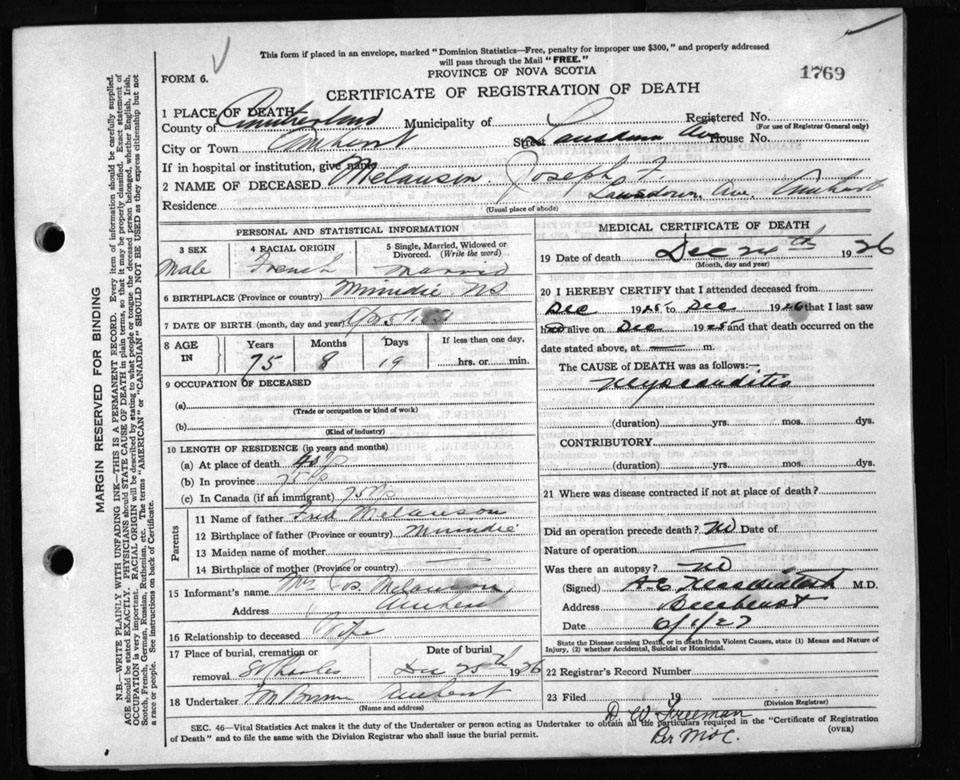 This form if placed in an envelope, marked "Dominion Statistics—Free, penalty for improper use $300," and properly addressed
will pass through the Mail "FREE."
FORM 6.
PROVINCE OF NOVA SCOTIA
1769
CERTIFICATE OF REGISTRATION OF DEATH
1 PLACE OF DEATH
County of Cumberland Municipality of Registered No.
(For use of Registrar General only)
City or Town Amherst Street Lansdown Ave House No.
If in hospital or institution, give name
2 NAME OF DECEASED Melanson, Joseph F.
Residence Lansdown Ave. Amherst
(Usual place of abode)
PERSONAL AND STATISTICAL INFORMATION
3 SEX 4 RACIAL ORIGIN 5 Single, Married, Widowed or
Divorced. (Write the word)
Male French Married
6 BIRTHPLACE (Province or country) Minudie NS
7 DATE OF BIRTH (month, day and year)
8 AGE IN Years Months Days If less than one day,
75 8 19 hrs. or min.
9 OCCUPATION OF DECEASED
(a)
(Trade or occupation or kind of work)
(b)
(Kind of industry)
10 LENGTH OF RESIDENCE (in years and months)
(a) At place of death
(b) In province 75
(c) In Canada (if an immigrant) 75
Parents
11 Name of father Fred Melanson
12 Birthplace of father (Province or country) Minudie
13 Maiden name of mother —
14 Birthplace of mother (Province or country) —
15 Informant's name Mrs Jos. Melanson
Address Amherst
16 Relationship to deceased Wife
17 Place of burial, cremation or Date of burial
removal St Charles Dec 28th 1926
18 Undertaker Amherst
(Name and address)
MEDICAL CERTIFICATE OF DEATH
19 Date of death Dec 26th 1926
(Month, day and year)
20 I HEREBY CERTIFY that I attended deceased from
Dec 192 to Dec 192 that I last saw
h alive on Dec 192 and that death occurred on the
date stated above, at — m.
The CAUSE of DEATH was as follows:—
Myocarditis
(duration) yrs. mos. dys.
CONTRIBUTORY.
(duration) yrs. mos. dys.
21 Where was disease contracted if not at place of death?
Did an operation precede death? No Date of
Nature of operation —
Was there an autopsy? No
(Signed) A.E. M.D.
Address
Date 6/1/27
State the Disease causing Death, or in death from Violent Causes, state (1) Means and Nature of
Injury, (2) whether Accidental, Suicidal or Homicidal.
22 Registrar's Record Number
23 Filed 19
(Division Registrar)
D W Freeman
Per
SEC. 46—Vital Statistics Act makes it the duty of the Undertaker or person acting as Undertaker to obtain all the particulars required in the "Certificate of Registration
of Death" and to file the same with the Division Registrar who shall issue the burial permit.
(OVER)
MARGIN RESERVED FOR BINDING
N.B.—WRITE PLAINLY WITH UNFADING INK—THIS IS A PERMANENT RECORD. Every item of information should be carefully supplied.
AGE should be stated EXACTLY. PHYSICIANS should STATE CAUSE OF DEATH in plain terms, so that it may be properly classified. Exact statement of
OCCUPATION is very important. RACIAL ORIGIN will be described by stating to what people or tongue the deceased person belonged, whether English, Irish,
Scotch, French, German, Russian, Ruthenian, etc. The terms "AMERICAN" or "CANADIAN" SHOULD NOT BE USED as they express citizenship but not
a race or people. See instructions on back of Certificate.